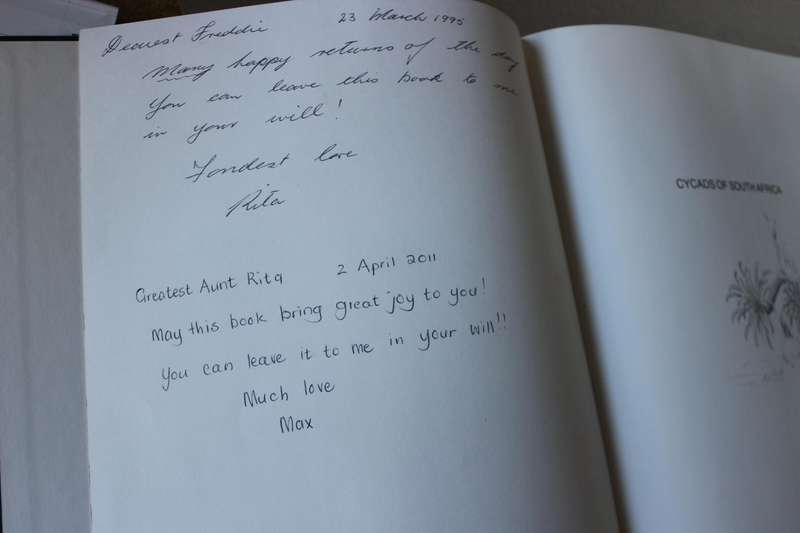 Dearest Freddie 23 March 1995
Many happy returns of the day
You can leave this book to me
in your will!
Fondest love
Rita
Greatest Aunt Rita 2 April 2011
May this book bring great joy to you!
You can leave it to me in your will!!
Much love
Max
CYCADS OF SOUTH AFRICA